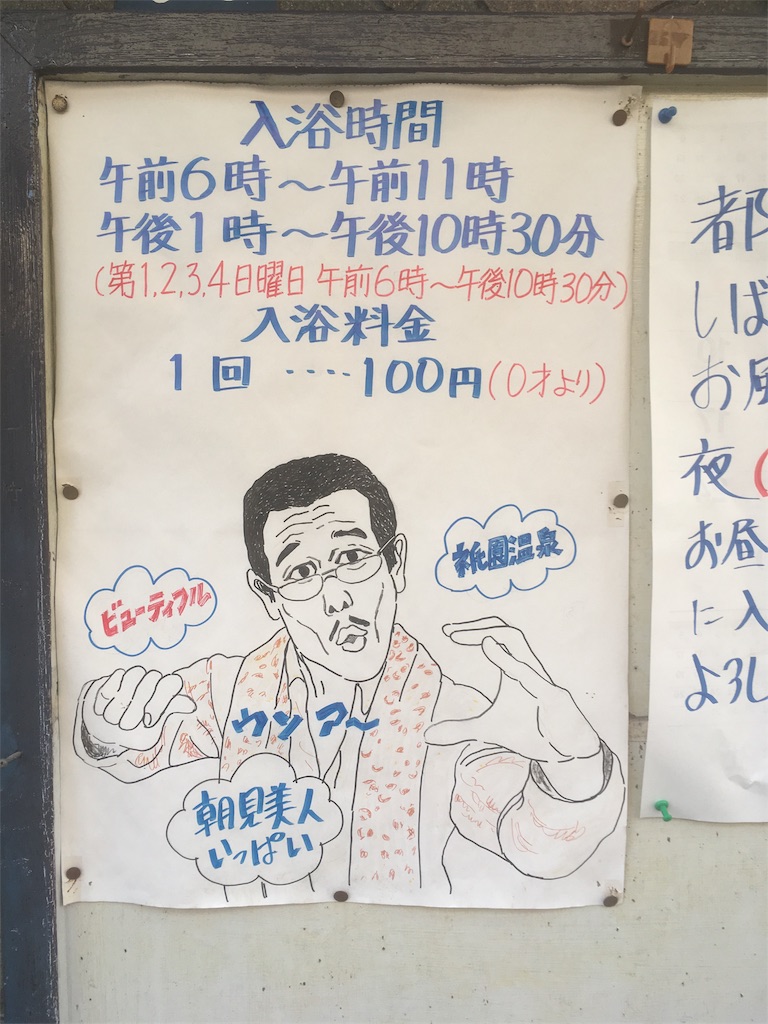 入浴時間
午前6時〜午前11時
午後1時〜午後10時30分
(第1,2,3,4日曜日 午前6時〜午後10時30分)
入浴料金
1回 ‥‥100円(0才より)
祇園温泉
ビューティフル
ウンアー〜
朝見美人
いっぱい
都
しば
お風
夜(
お昼
に入
よろし